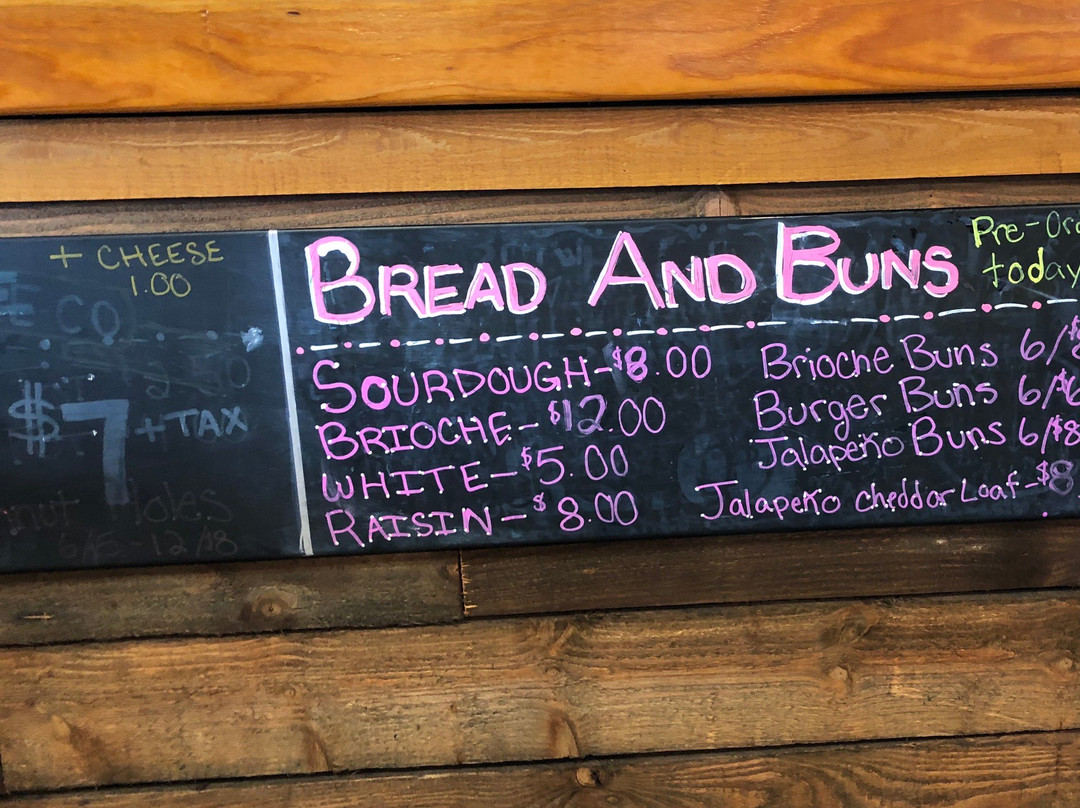 + CHEESE
1.00
$7 + TAX
Holes
BREAD AND BUNS
Pre-Ord
today
SOURDOUGH-$8.00
BRIOCHE-$12.00
WHITE-$5.00
RAISIN-$8.00
Brioche Buns 6/$8
Burger Buns 6/$6
Jalapeño Buns 6/$8
Jalapeño cheddar Loaf-$8